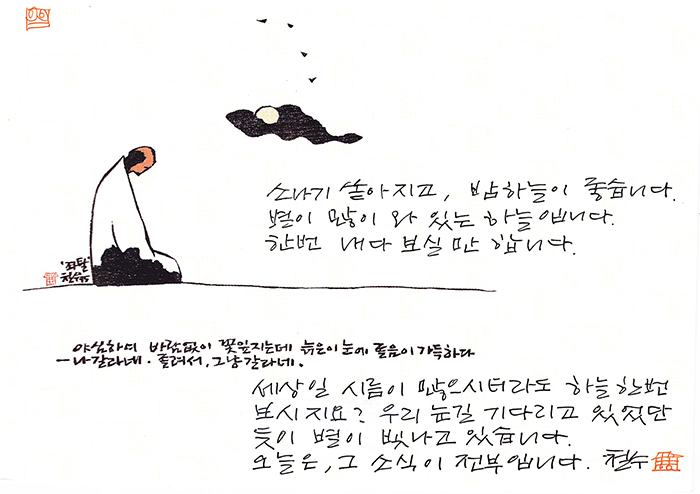 소나기 쏟아지고, 밤하늘이 좋습니다.
별이 많이 와 있는 하늘입니다.
한번 내다 보실 만 합니다.
'좌탈'
철수95
야심하여 바람없이 꽃잎지는데 늙은이 눈에 졸음이 가득하다
— 나 갈라네. 졸려서, 그냥 갈라네.
세상일 시름이 많으시더라도 하늘 한번
보시지요? 우리 눈길 기다리고 있었단
듯이 별이 빛나고 있습니다.
오늘은, 그 소식이 전부입니다. 철수